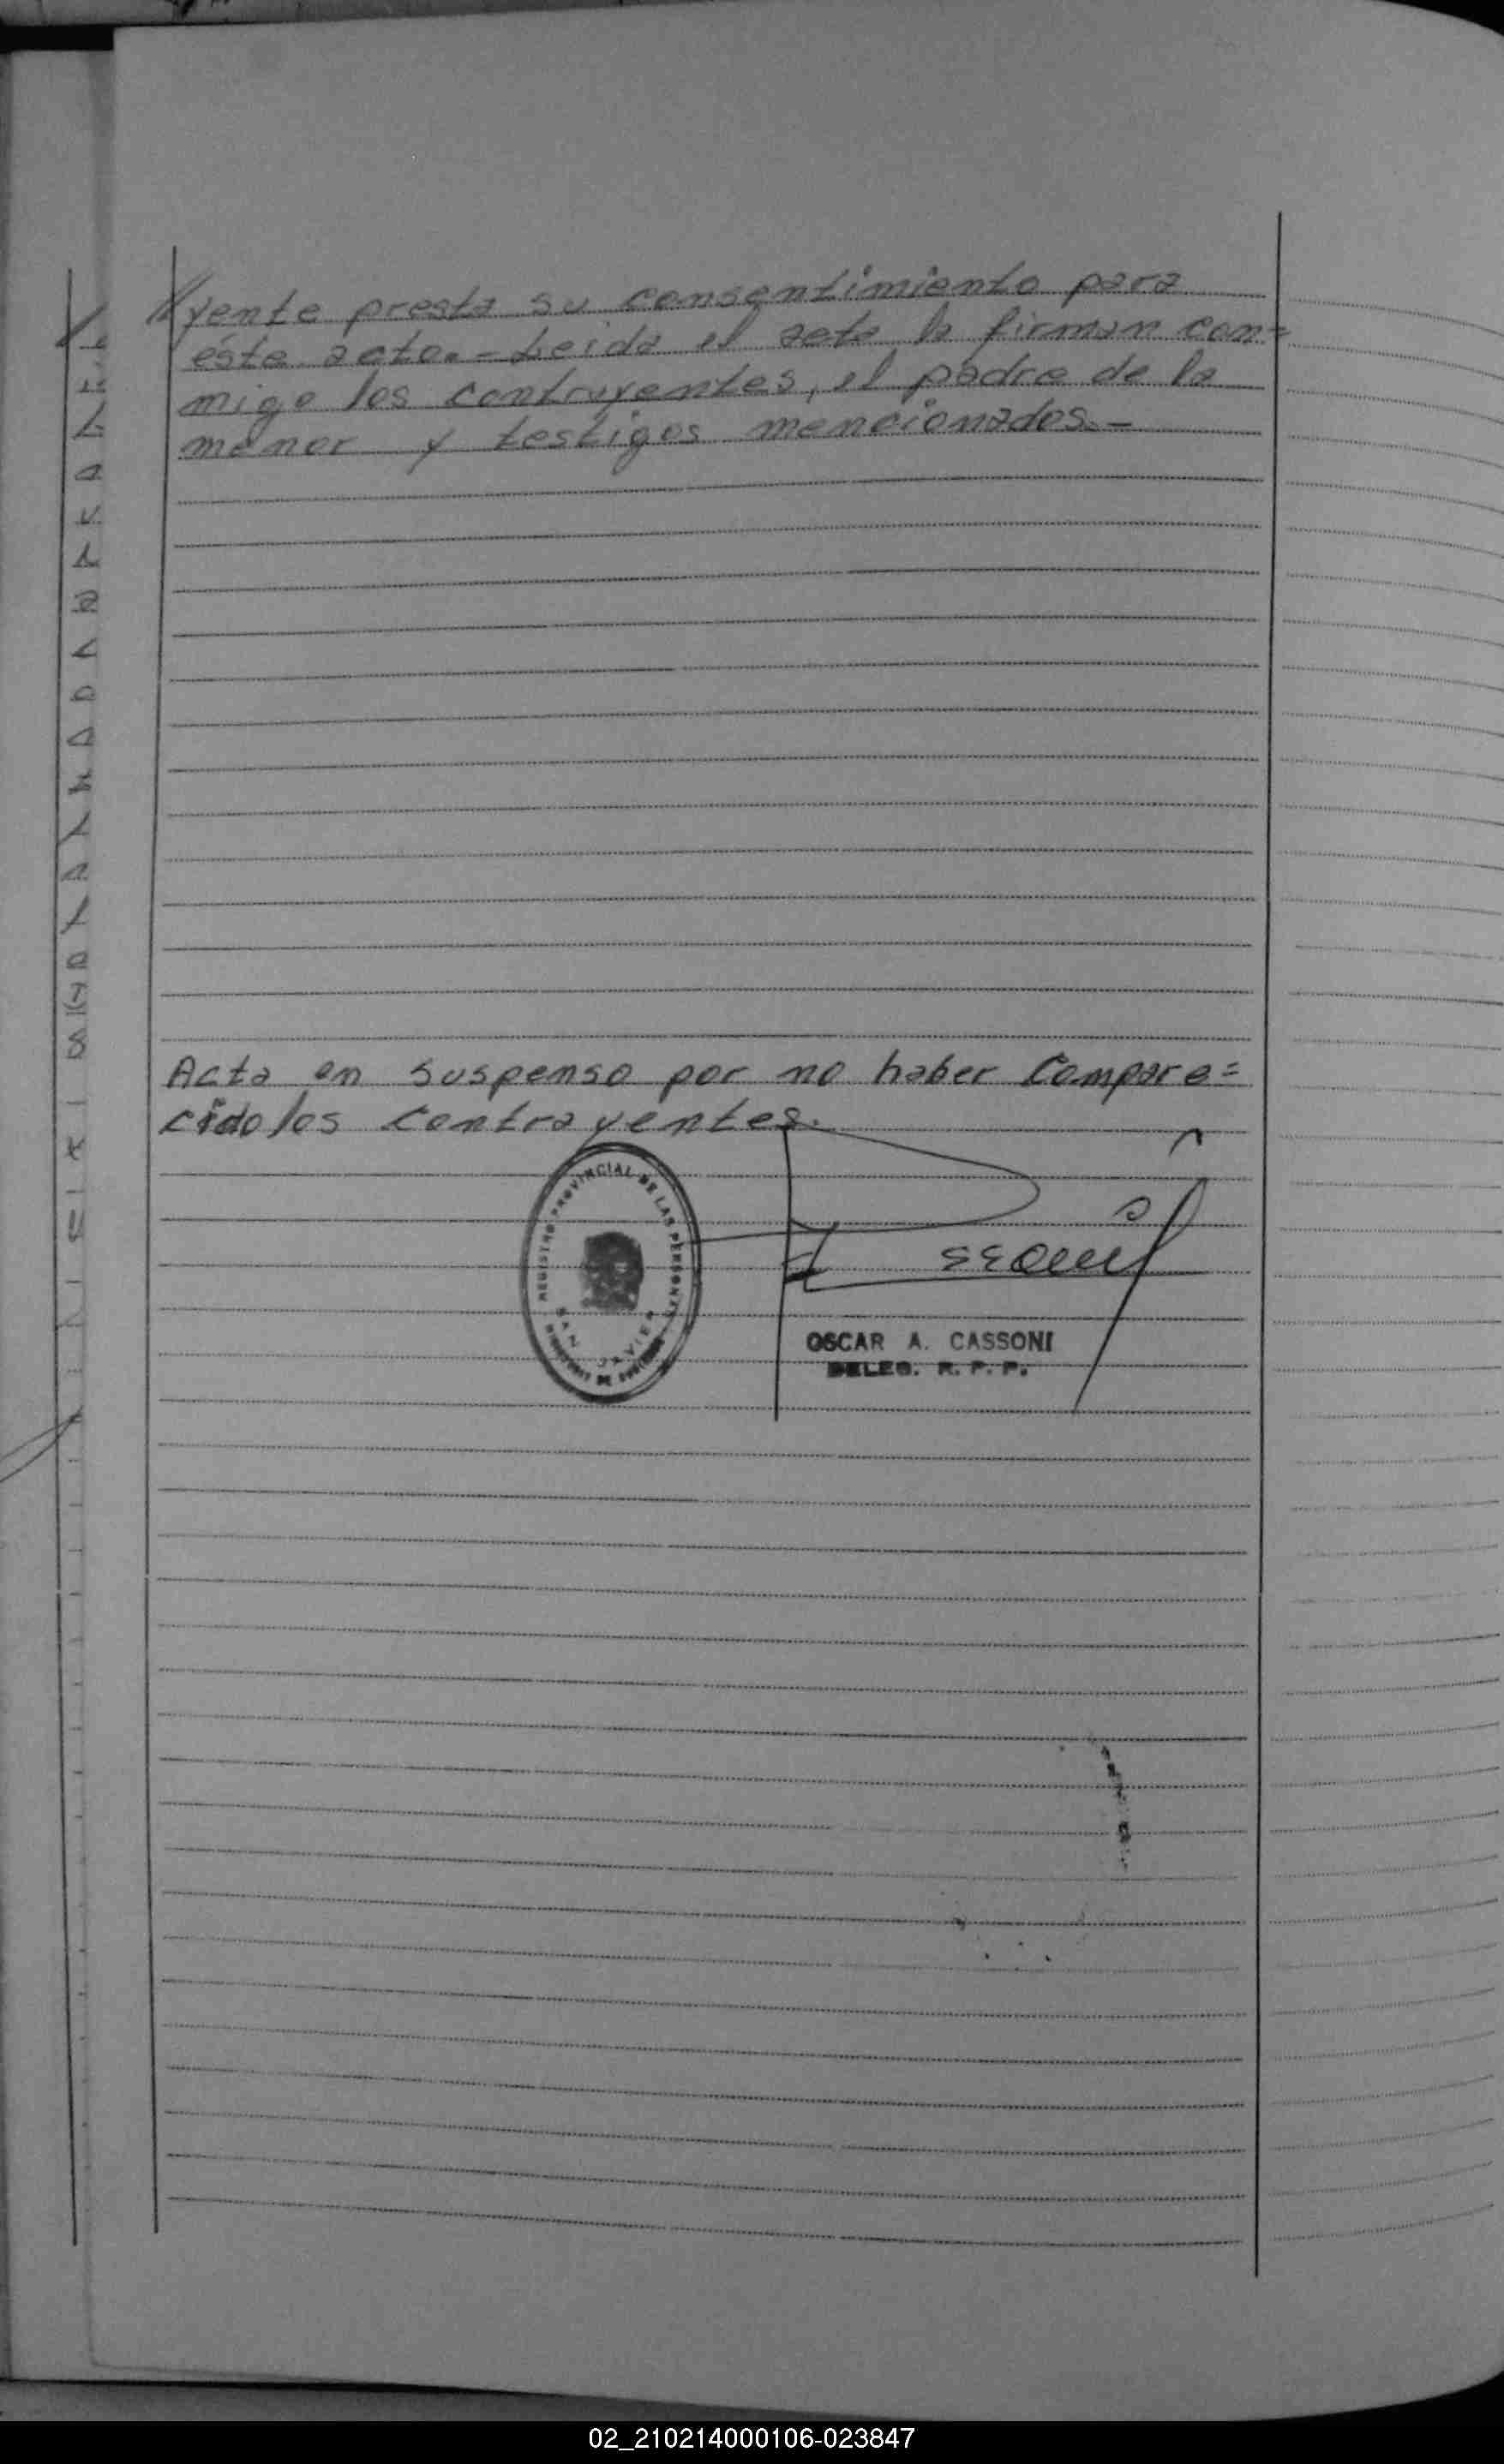 yente presta su consentimiento para
éste acto.- Leida el acta la firman con=
migo los contrayentes, el padre de la
menor y testigos mencionados.-
Acta en suspenso por no haber Compare=
cido los contrayentes.
REGISTRO PROVINCIAL DE LAS PERSONAS
SAN JAVIER
OSCAR A. CASSONI
DELEG. R. P. P.
02_210214000106-023847